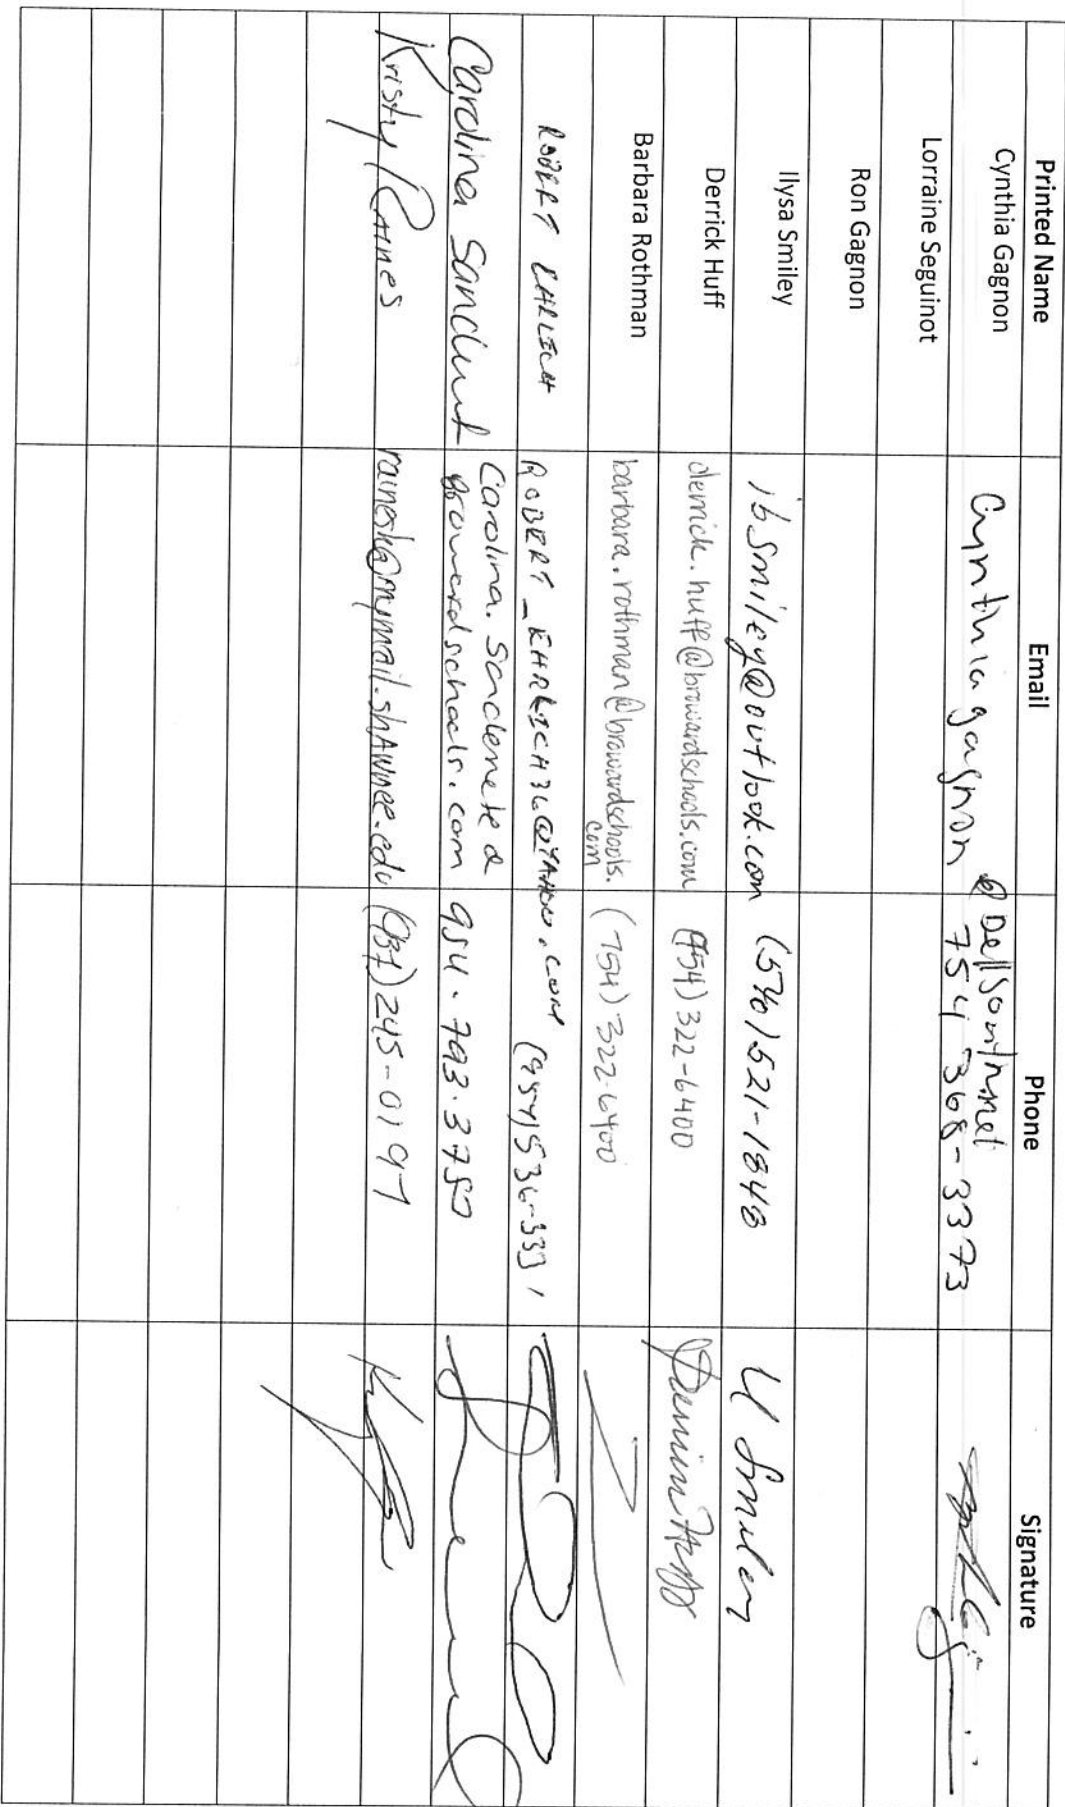 Printed Name Email Phone Signature
Cynthia Gagnon Cynthia gagnon @ Bellsouth.net 754 368-3373
Lorraine Seguinot
Ron Gagnon
Ilysa Smiley ibsmiley@outlook.com (576) 521-1848 Il Smiley
Derrick Huff derrick.huff@browardschools.com (754) 322-6400 Derrick Huff
Barbara Rothman barbara.rothman@browardschools.
com (754) 322-6400
ROBERT EHRLICH ROBERT_EHRLICH36@YAHOO.COM (954) 536-3331
Carolina Carolina.
browardschools.com 954.793.3757
Kristy Raines rainesk@mymail.shawnee.edu (937) 245-0197